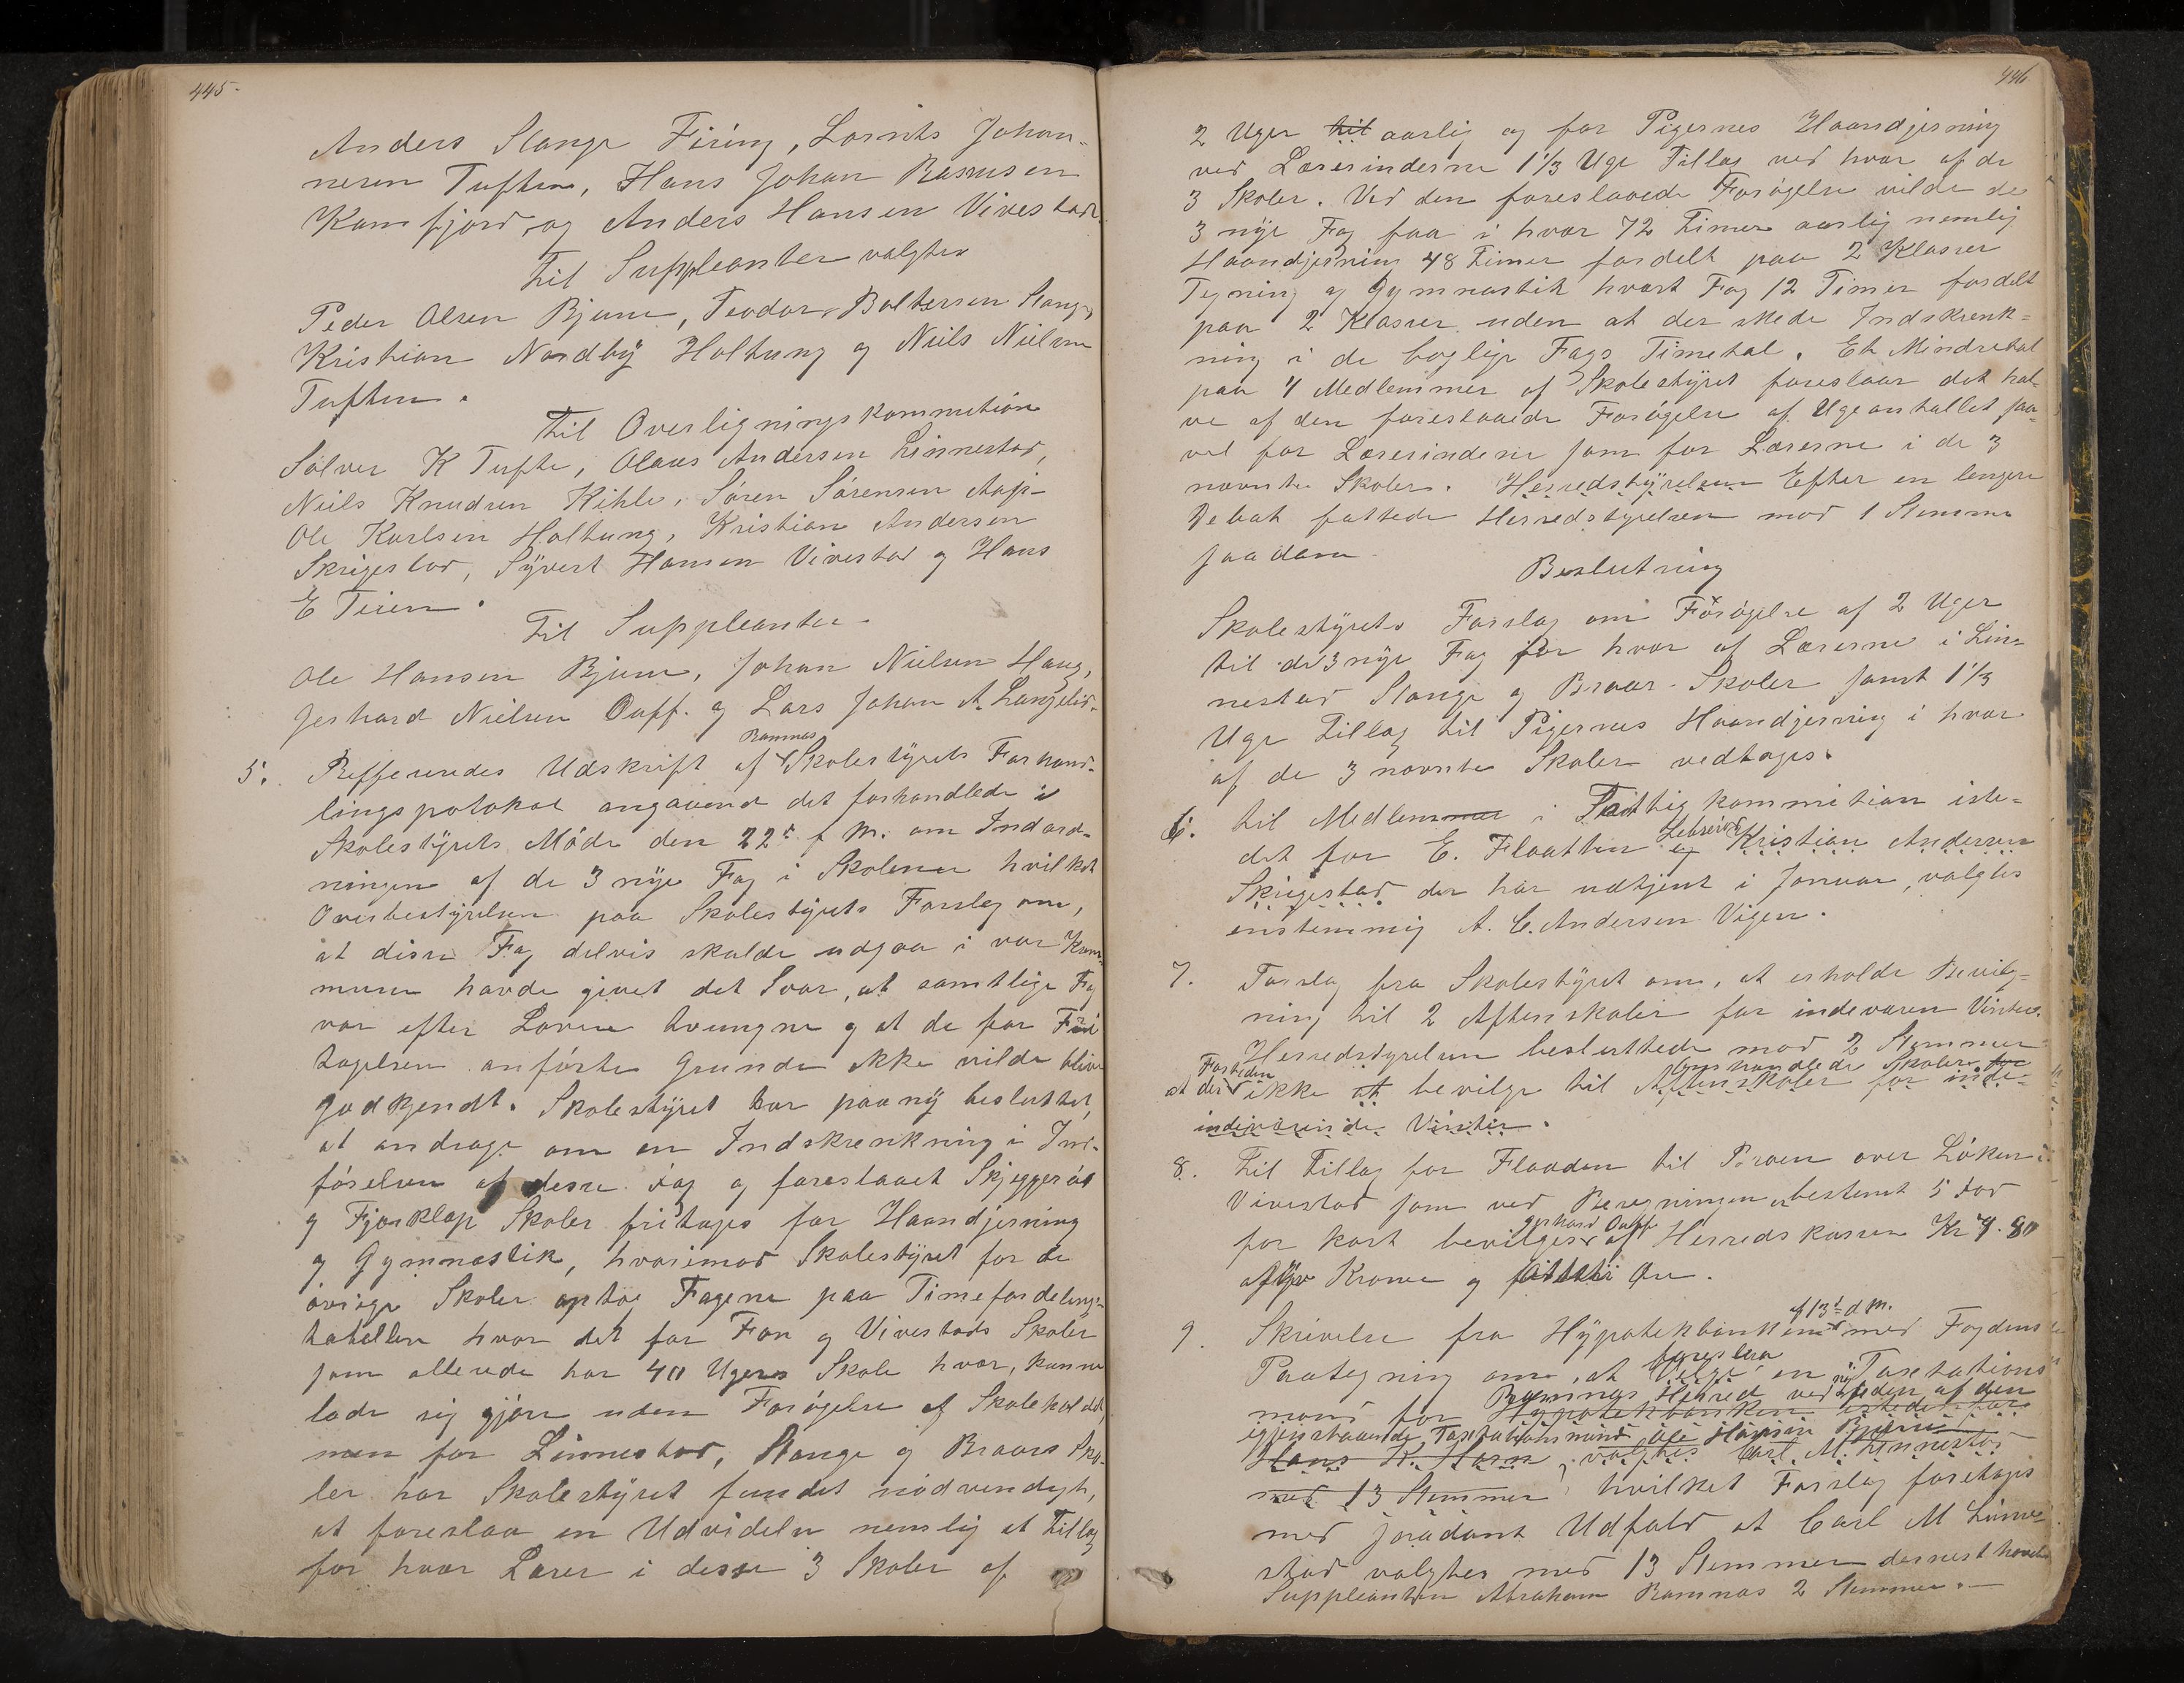 445.
Anders Slange Firing, Lornts Johan-
nesen Tuften, Hans Johan Rasmusen
Kamfjord og Anders Hansen Vivestad.
Til Suppleanter valgtes
Peder Olsen Bjune, Teodor Baltersen Slange,
Kristian Nordby Holtung og Niels Nielsen
Tuften.
Til Overligningskommision
Sölver K Tufte, Olaves Andersen Linnestad,
Niels Knudsen Kihle, Sören Sörensen Aap-
Ole Karlsen Holtung, Kristian Andersen
Skrigestad, Syvert Hansen Vivestad og Hans
E Teien.
Til Suppleanter.
Ole Hansen Bjune, Johan Nielsen Haug,
Gerhard Nielsen Ouff. og Lars Johan A. Langelid.
5. Reffereredes Udskrift af Ramnæs Skolestyrets Forhand-
lingspotokol angaaend det forhandlede i
Skolestyrets Möde den 22de f M. om Indord-
ningen af de 3 nye Fag i Skolerne hvilket
Overbestyrelsen paa Skolestyrets Forslag om,
at disse Fag delvis skulde udgaa i vor Kom-
mune havde givet det Svar, at samtlige Fag
var efter Loven tvungne og at de for Fri
tagelsen anförte Grunde ikke vilde blive
godkjendt. Skolestyret har paany besluttet,
at andrage om en Indskrenkning i Ind-
förelsen af disse Fag og foreslaaet Skjeggeröd
og Fjærklap Skoler fritages for Haandjerning
og Gymnastik, hvorimod Skolestyret for de
övrige Skoler optog Fagene paa Timefordelings-
tabellen hvor det for Fon og Vivestads Skoler
som allerede har 40 Ugers Skole hver, kunne
lade sig gjöre uden Forögelse af Skoleholdet,
men for Linnestad, Slange og Braars Sko-
ler har Skolestyret fundet nödvendigt,
at foreslaa en Udvidelse nemlig et Tillæg
for hver Lærer i disse 3 Skoler af
446
2 Uger til aarlig og for Pigernes Haandjerning
ved Lærerinderne 1 1/3 Uge Tillæg ved hver af de
3 Skoler. Ved den foreslaaede Forögelse vilde de
3 nye Fag faa i hver 72 Timer aarlig nemlig
Haandjerning 48 Timer fordelt paa 2 Klasser
Tegning og Gymnastik hvert Fag 12 Timer fordelt
paa 2 Klasser uden at der skede Indskrenk-
ning i de boglige Fags Timetal. Et Mindretal
paa 4 Medlemmer af Skolestyret foreslaar det hal-
ve af den foreslaaede Forögelse af Ugeantallet saa-
vel for Lærerinderne som for Lærerne i de 3
nævnte Skoler. Herredstyrelsen Efter en lengere
Debat fattede Herredstyrelsen mod 1 Stemme
saadan
Beslutning
Skolestyrets Forslag om Forögelse af 2 Uger
til de 3 nye Fag for hver af Lærerne i Lin-
nestad Slange og Braar-Skoler samt 1 1/3
Uge Tillæg til Pigernes Haandjerning i hver
af de 3 nævnte Skoler vedtages.
6. Til Medlemmer i Fattigkommition iste-
det for E. Flaatten og Kristian Andersen
Skrigestad der har udtjent i Januar, valgtes
enstemmig A. C. Andersen Vigen.
7. Forslag fra Skolestyret om, at erholde Bevilg-
ning til 2 Aftenskoler for indeværen Vinter.
Herredstyrelsen besluttede mod 2 Stemmer
at der Fortiden ikke at bevilge til omhandlede Skoler for Aftenskoler for inde-
indeværende Vinter.
8. Til Tillæg for Flaaden til Broen over Löken i
Vivestad som ved Beregningen bestemt 5 Fod
for kort bevilges Gerhard Ouff af Herredskassen Kr 7.80
syv Kroner og otteti Öre.
9. Skrivelse fra Hypotekbanken af 13de d M. med Fogdens
Paategning om, at Velge foreslaa en ny Taxtations
mand for Hypotekbanken istedetfor Ramnæs Herred ved Siden af den
igjenstaaende Taxtationsmand Ole Hansen Bjune
Hans K. Horn, valgtes Carl M. Linnestad
med 13 Stemmer hvilket Forslag foretoges
med saadant Udfald at Carl M Linne-
stad valgtes med 13 Stemmer dernest havde
Suppleanten Abraham Ramnæs 2 Stemmer.